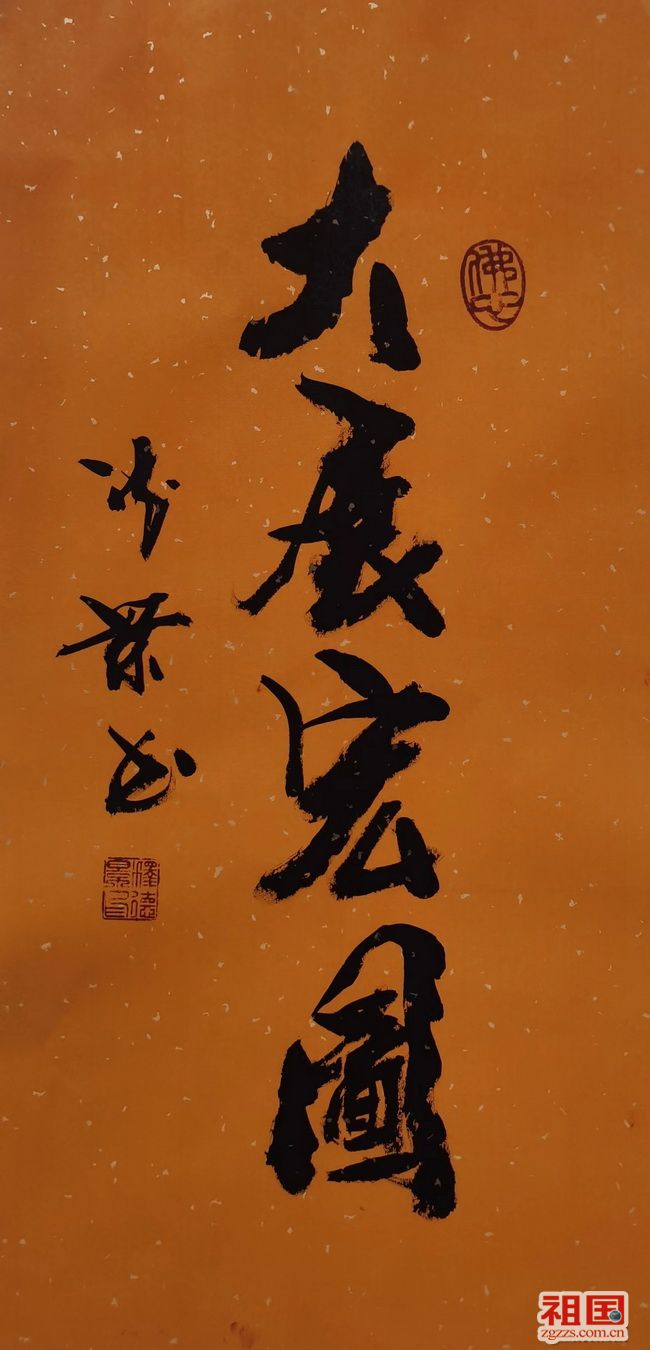 大展宏图
佛心
祖国
zgzzs.com.cn